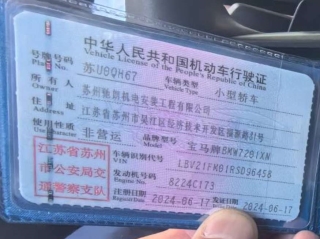 中华人民共和国机动车行驶证
Vehicle License of the People's Republic of China
号牌号码 苏U9QH67 车辆类型 小型轿车
Plate No. Vehicle Type
所有人 苏州 机电安装工程有限公司
住址 江苏省苏州市吴江区经济技术开发区 路 号
使用性质 非营运 品牌型号 宝马牌BMW7201XN
Use Character Model
江苏省苏州
市公安局交
通警察支队
车辆识别代号 LBV21FK01RSD96458
VIN
发动机号码 8224C173
Engine No.
注册日期 2024-06-17 发证日期 2024-06-17